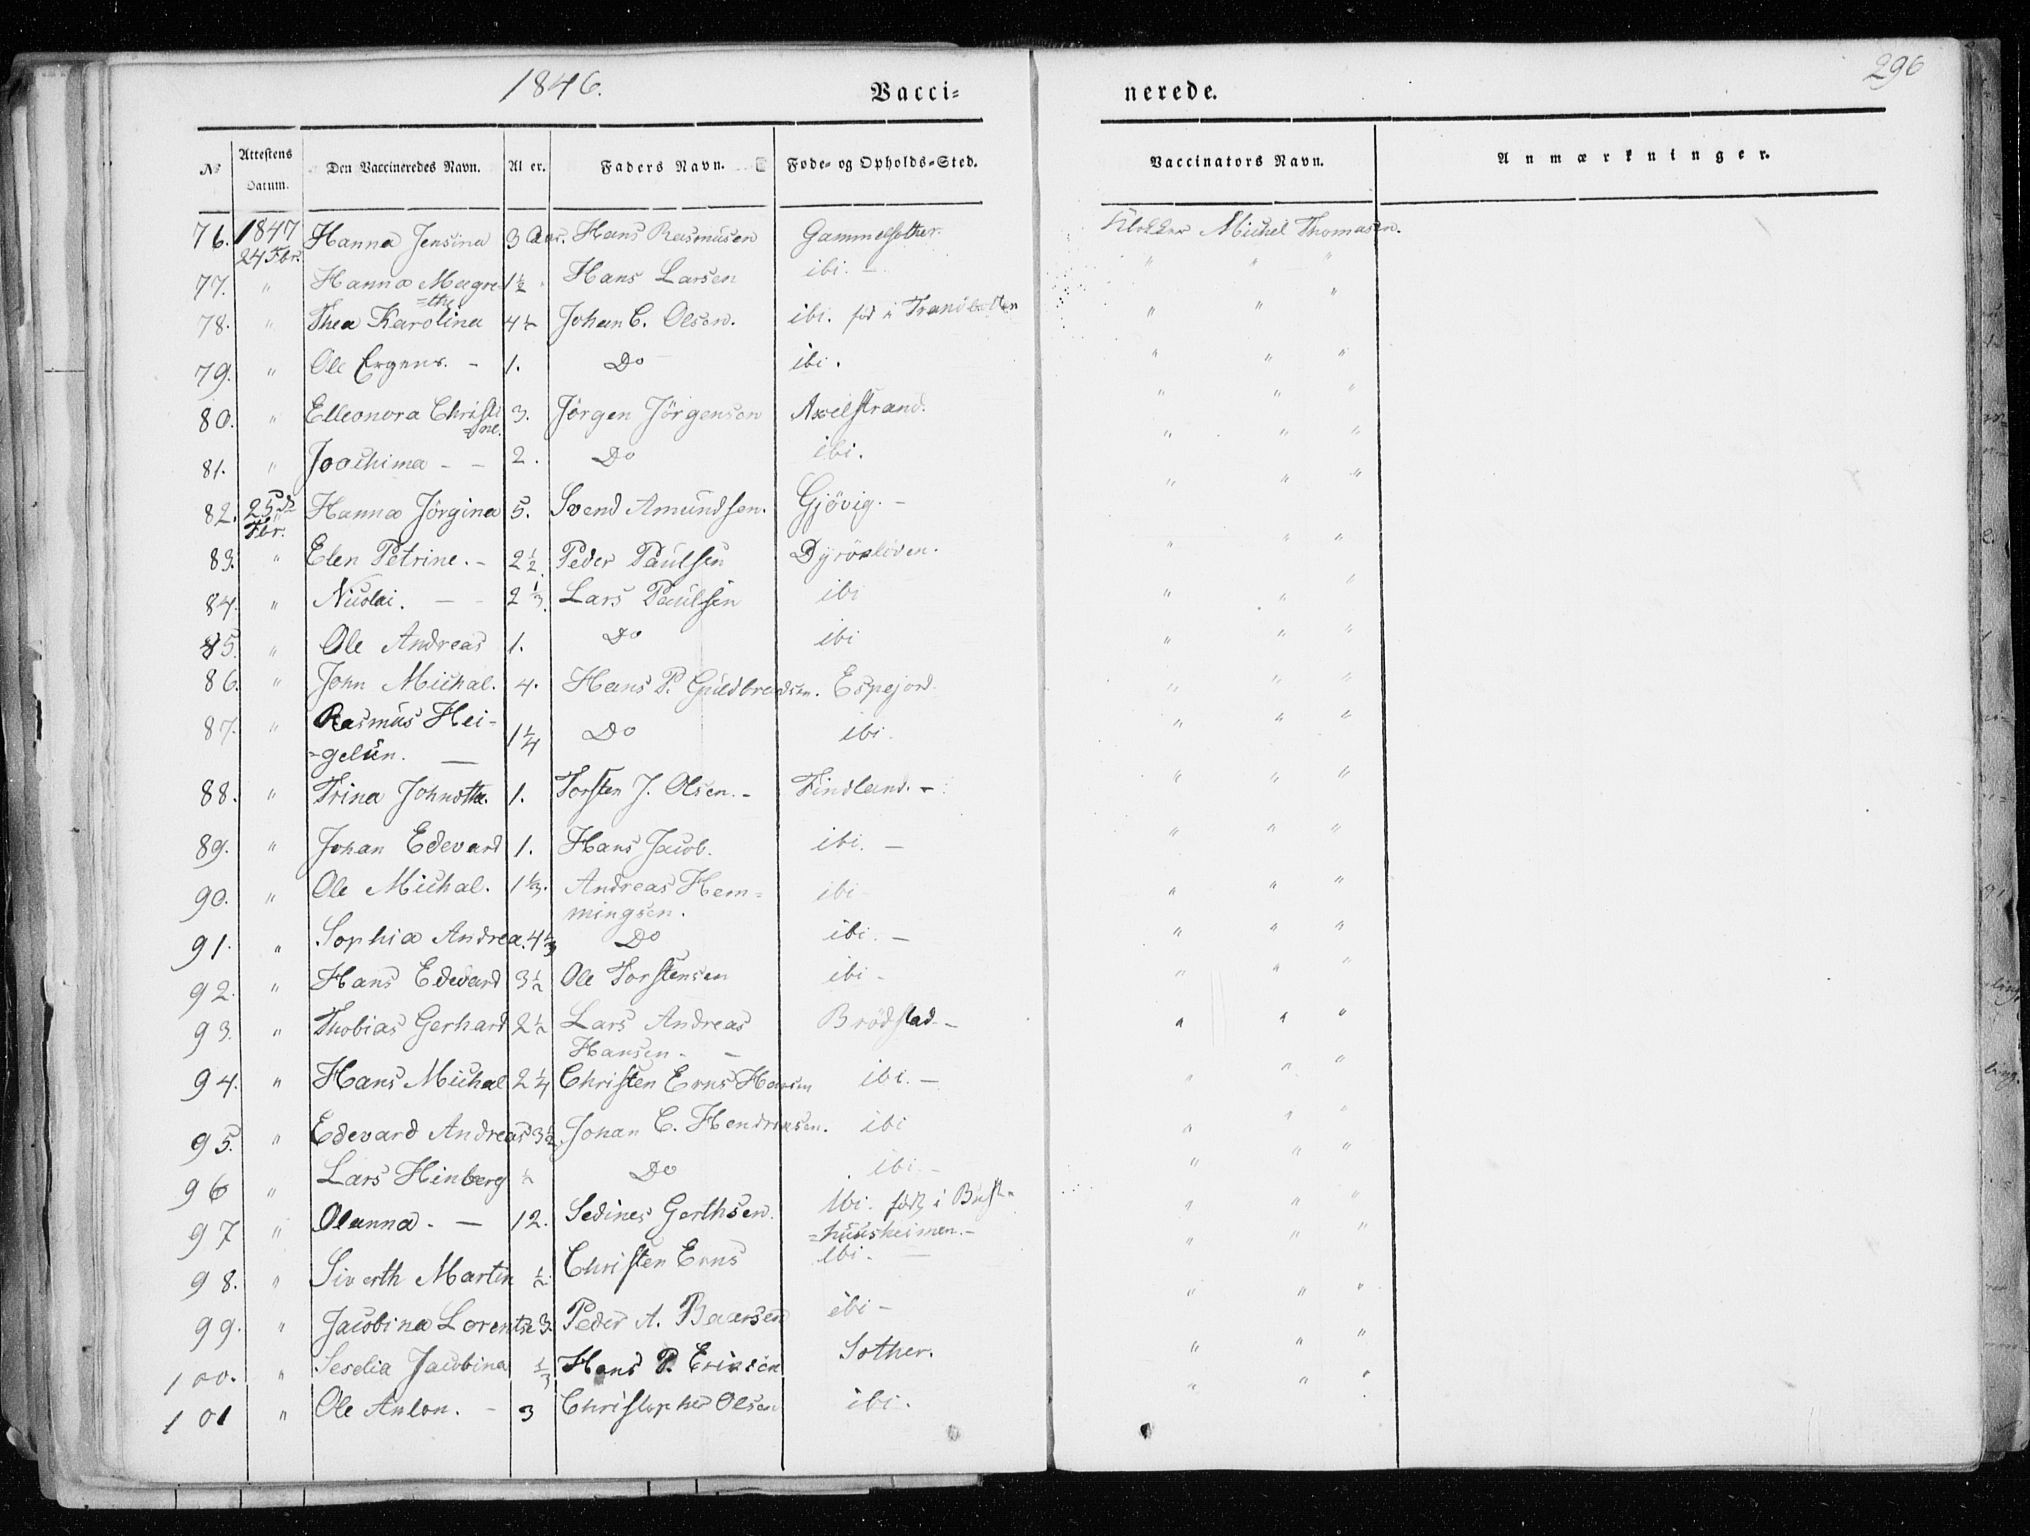 1846.
Vacci=
nerede.
296
No
Attestens Datum.
Den Vaccineredes Navn.
Al er.
Faders Navn.
Fode- og Opholds-Sted.
Vaccinators Navn.
Anmærkninger.
76. 1847 24 Fbr. Hanna Jensina 3 Aar. Hans Rasmusen Gammelsother. Klokker Michel Thomasen.
77. " Hanna Magre=the 1½ Hans Larsen ibi. — " " "
78. " Thea Karolina 4½ Johan C. Olsen. ibi. fød i Tranbotten " " "
79. " Ole Ergens. - 1. Do ibi. " " "
80. " Elleonora Christi=ne. 3. Jörgen Jörgensen Axelstrand. " " "
81. " Joachima - - 2. Do ibi. " " "
82. 25de Fbr. Hanna Jörgina 5. Svend Amundsen. Gjövig. - " " "
83. " Elen Petrine. - 2½ Peder Paulsen Dyröxlöven. " " "
84. " Nicolai. - - 2⅓. Lars Paulsen ibi " " "
85. " Ole Andreas 1. Do ibi " " "
86. " John Michal. 4. Hans P. Guldbrandsen. Espejord. " " "
87. " Rasmus Hei-
=gelün. — 1¼ Do ibi. " " "
88. " Trina Johnotta. 1. Torsten J. Olsen. - Findland. - " " "
89. " Johan Edevard 1. Hans Jacob. ibi. — " " "
90. " Ole Michal. 1⅓. Andreas Hem=
mingsen. ibi " " "
91. " Sophia Andrea. 4⅓ Do ibi. — " " "
92. " Hans Edevard 3½ Ole Torstensen ibi - " " "
93. " Thobias Gerhard 2½ Lars Andreas
Hansen. - — Brödstad. - " " "
94. " Hans Michal 2¼ Christen Erns Hansen ibi. — " " "
95. " Edevard Andreas 3½ Johan C. Hendriksen. ibi " " "
96 " Lars Hinberg ½ Do ibi. - " " "
97 " Olanna. — 12. Sedines Gerthsen. ibi. född i Bust-
=huusheimen. - " " "
98. " Siverth Martin ½ Christen Erns ibi. — " " "
99. " Jacobina Lorentse 3. Peder A. Baarsen ibi - " " "
100. " Seselia Jacobina ⅓ Hans P. Eriksen Sother. " " "
101 " Ole Anton. - 3 Christopher Olsen ibi. " " "